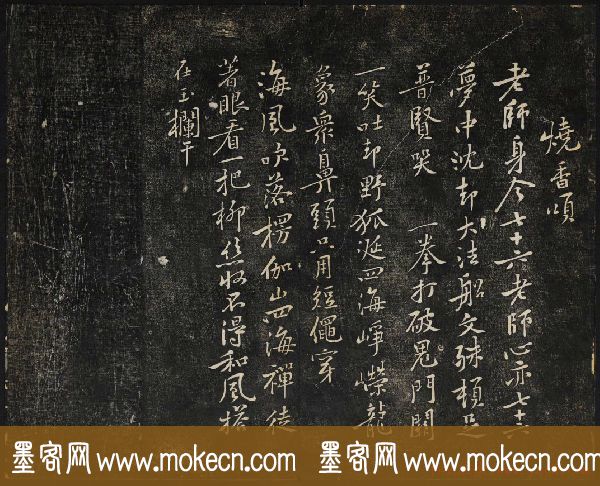 燒香頌
老師身今七十六老師心亦七十六
夢中沈却大法船文殊頓足
普賢哭 一拳打破鬼門關
一笑吐却野狐涎四海崢嶸龍
象衆鼻頭只用短繩穿
海風吹落楞伽山四海禪徒
著眼看一把柳絲收不得和風搭
在玉欄干
墨客网 www.mokecn.com 墨客网 www.mokecn.com